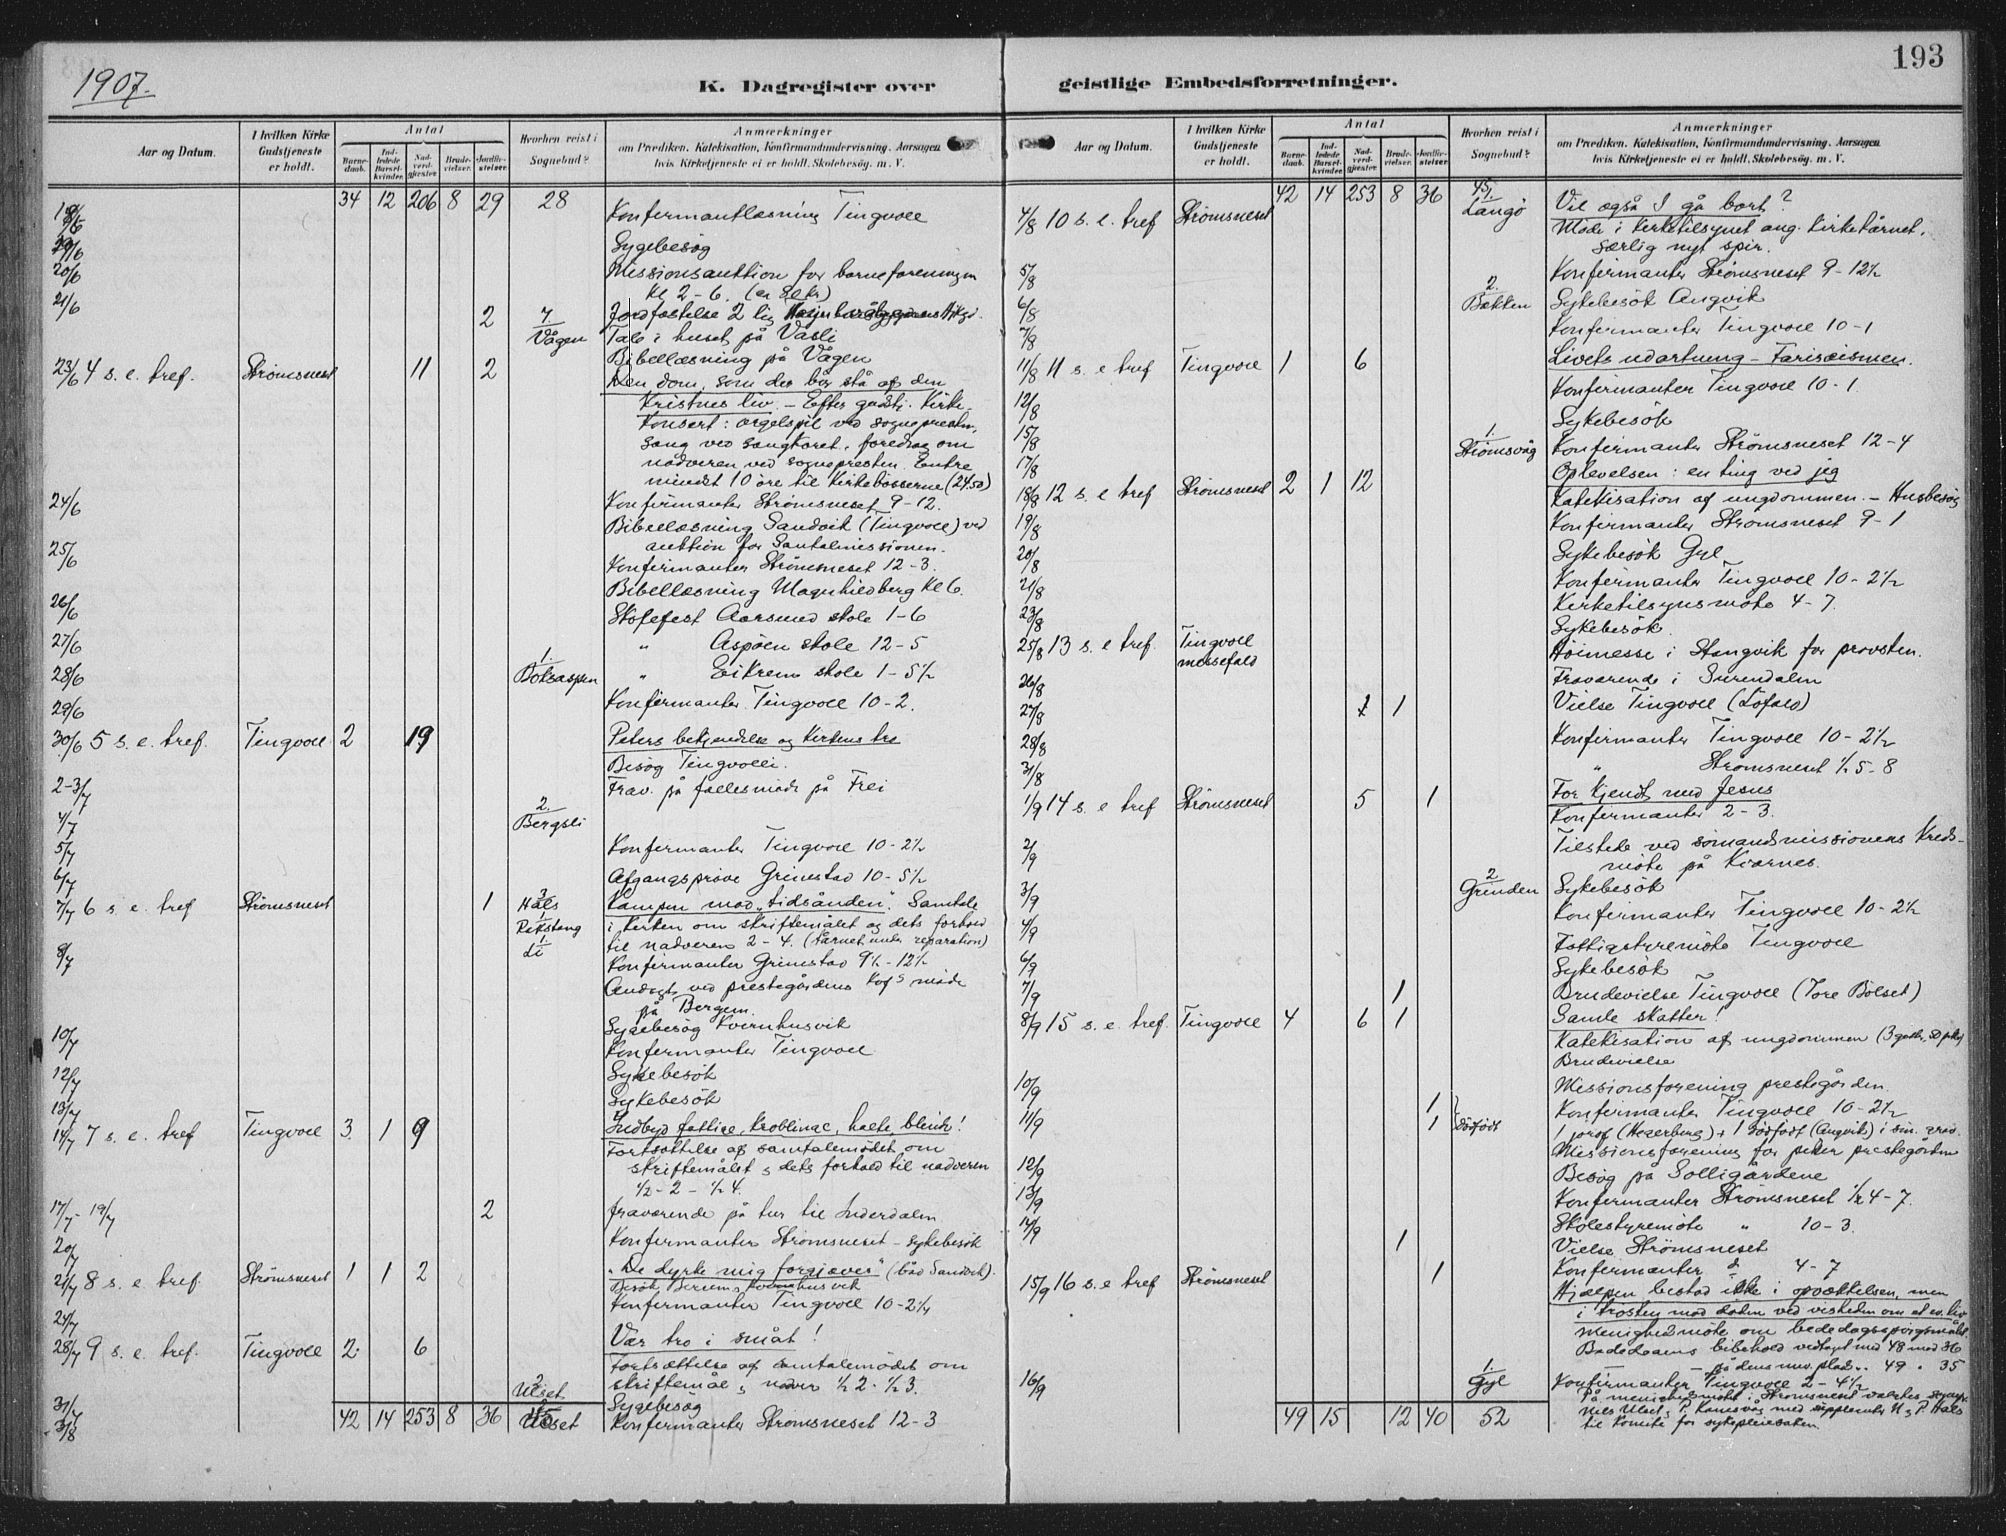 193
1907.
K. Dagregister over geistlige Embedsforretninger.
Aar og Datum.
I hvilken Kirke Gudstjeneste er holdt.
Antal
Barnedaab.
Indledede Barselkvinder.
Nadverdgjester.
Brudevielser.
Jordfæstelser.
Hvorhen reist i Sognebud?
Anmærkninger
om Prædiken. Katekisation, Konfirmandundervisning. Aarsagen
hvis Kirketjeneste ei er holdt. Skolebesøg. m. V.
34 12 206 8 29 28
Konfirmantlæsning Tingvoll
Sygebesøg
20/6 Missionsauktion for barneforeningen
21/6 kl 2-6.
2 7. Vågen Jordfæstelse 2 lig
Tale i huset på Vasli
Bibellæsning på Vågen
23/6 4 s. e. tref. Strømsneset 11 2 Den dom, som der bør stå af den
kristnes liv. - Efter gudstj. Kirke
konsert: orgelspil ved sognepresten,
sang ved sangkoret, foredrag om
nadveren ved sognepresten. Entre
mindst 10 øre til kirkebøsserne (24.50)
24/6 Konfirmanter Strømsneset 9-12.
Bibellæsning Sandvik (Tingvoll) ved
auktion for Santalmissionen.
25/6 Konfirmanter Strømsneset 12-3.
Bibellæsning Magnhildberg kl 6.
26/6 Skolefest Aarsund skole 1-6
27/6 " Aspøen skole 12-5
28/6 1. Boksaspen " Eikrem skole 1-5½
29/6 Konfirmanter Tingvoll 10-2.
30/6 5 s. e. tref. Tingvoll 2 19 Peters bekjendelse og kirkens tro
Besøg Tingvoll.
2-3/7 Frav. på fællesmøde på Frei
4/7 2. Bergsli
5/7 Konfirmanter Tingvoll 10-2½
6/7 Afgangsprøve Grimstad 10-5½
7/7 6 s. e. tref Strømsneset 1 3 Hals Kampen mod "tidsånden". Samtale
1. Rikstang i kirken om skriftemålet og dets forhold
1. Li til nadveren 2-4. (tårnet under reparation)
8/7 Konfirmanter Grimstad 9½-12½
Andagt ved prestegårdens møde
på Bergem.
Sygebesøg Kvernhusvik
10/7 Konfirmanter Tingvoll
12/7 Sykebesøk
13/7 Sykebesøk
14/7 7 s. e. tref Tingvoll 3 1 9 Indbyd fattige, krøblinge, halte, blinde!
Fortsættelse af samtalemødet om
skriftemålet & dets forhold til nadveren
½-2-½4.
17/7-19/7 2 fraværende på tur til Inderdalen
20/7 Konfirmanter Strømsneset - sykebesøk
21/7 8 s. e. tref. Strømsneset 1 1 2 "De dyrke mig forgjæves"
Konfirmanter Tingvoll 10-2½
24/7
28/7 9 s. e. tref. Tingvoll 2 6 Vær tro i småt!
Fortsættelse af samtalemødet om
2 Ulset skriftemål & ½2-½3.
31/7 Sygebesøg
3/8 42 14 253 8 36 Konfirmanter Strømsneset 12-3
Aar og Datum.
I hvilken Kirke Gudstjeneste er holdt.
Antal
Barnedaab.
Indledede Barselkvinder.
Nadverdgjester.
Brudevielser.
Jordfæstelser.
Hvorhen reist i Sognebud?
Anmærkninger
om Prædiken. Katekisation, Konfirmandundervisning. Aarsagen
hvis Kirketjeneste ei er holdt. Skolebesøg. m. V.
42 14 253 8 36 45
4/8 10 s. e. tref Strømsneset Langø Vil også I gå bort?
Møde i kirketilsynet ang. kirketårnet,
særlig nyt spir.
5/8 Konfirmanter Strømsneset 9-12½
6/8 2. Bækken Sykebesøk Angvik
7/8 Konfirmanter Tingvoll 10-1
11/8 11 s. e tref Tingvoll 1 6 Livets udartning - Farisæismen.
12/8 Konfirmanter Tingvoll 10-1.
15/8 Sykebesøk
17/8 1. Strømsvåg Konfirmanter Strømsneset 12-4
18/8 12 s. e tref Strømsneset 2 1 12 Oplevelsen: en ting ved jeg
Katekisation af ungdommen. - Husbesøg
19/8 Konfirmanter Strømsneset 9-1
20/8 Sykebesøk Gyl
21/8 Konfirmanter Tingvoll 10-2½
23/8 Kirketilsynsmøte 4-7.
Sykebesøk.
25/8 13 s. e tref. Tingvoll messefald Høimesse i Stangvik for provsten.
26/8 Fraværende i Surendalen
27/8 1 Vielse Tingvoll (Løfald)
28/8 Konfirmanter Tingvoll 10-2½
31/8 " Strømsneset ½5-8
1/9 14 s. e tref Strømsneset 5 1 For kjendt med Jesus
Konfirmanter 2-3.
2/9 Tilstede ved sømandsmissionens kredsmøte
på Kvernes.
3/9 2 Grinden Sykebesøk
4/9 Konfirmanter Tingvoll 10-2½
Fattigstyremøte Tingvoll
6/9 Sykebesøk
7/9 1 Brudevielse Tingvoll (Tore Bølset)
8/9 15 s. e. tref. Tingvoll 4 6 1 Samle skatter!
Katekisation af ungdommen
Brudevielse
10/9 Missionsforening prestegården.
11/9 1 Konfirmanter Tingvoll 10-2½
1 dødfødt 1 jordf (Hegerberg) + 1 dødfødt (Angvik)
Missionsforening for piker prestegården
12/9 Besøg på Solligårdene
13/9 Konfirmanter Strømsneset ½4-7.
14/9 Skolestyremøte " 10-3.
1 Vielse Strømsneset
Konfirmanter 4-7
15/9 16 s. e tref Strømsneset 1 Hjælpen bestod ikke i opvækkelsen, men
i trosten mod døden ved visheden om et ev. liv
Menighedsmøte om bededagsspørgsmålet.
Bededagens bibehold vedtaget med 48 mod 36
- på dens nuv. plads. 49 . 35
16/9 1. Gyl Konfirmanter Tingvoll 2-4½
På menighedsmøtet i Strømsneset valgtes
Nils Ulset, P. Kamsvåg med supplenter N & P. Hals
til komite for sykepleiesaken.
49 15 12 40 52